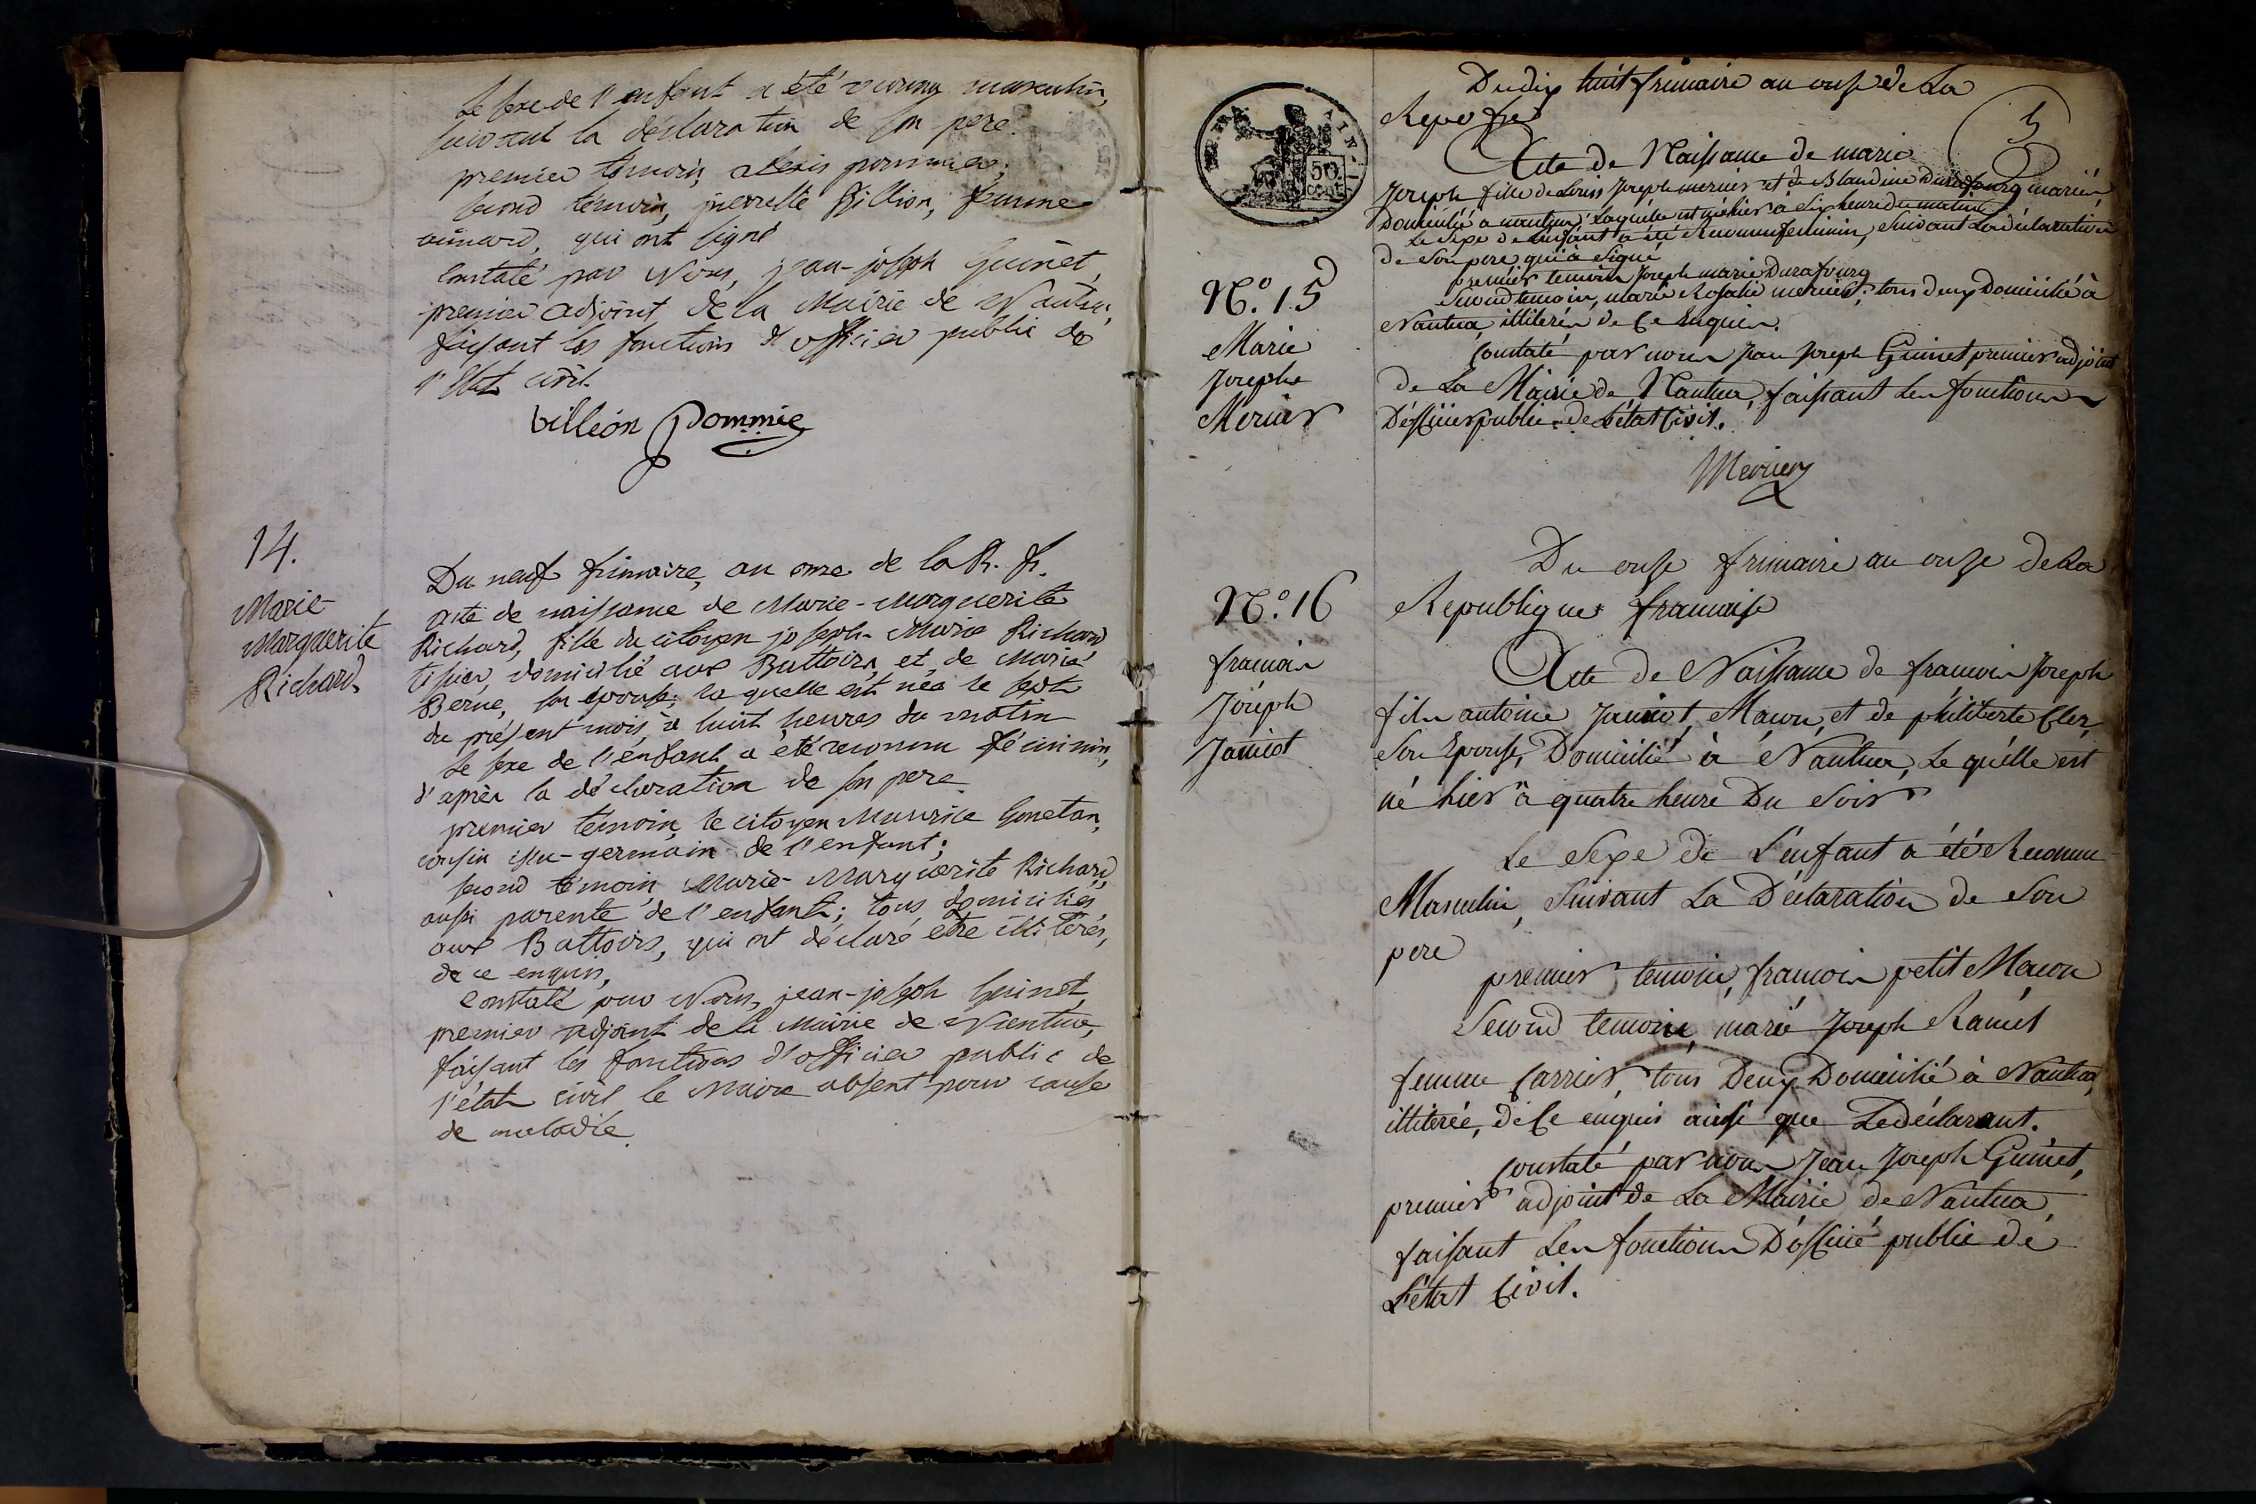 Le sexe de l'enfant a été reconnu masculin,
suivant la déclaration de son pere.
premier témoin, alexis pommier,
second témoin, pierrette Billion, femme
aimard, qui ont signé
Constaté par Nous, jean-joseph Guinet,
premier adjoint de la Mairie de Nantua,
faisant les fonctions d'officier public de
l'Etat civil.
billion pommie
14.
Marie
Marguerite
Richard
Du neuf frimaire, an onze de la R. fr.
acte de naissance de Marie-Marguerite
Richard, fille du citoyen joseph-Marie Richard,
tissier, domicilié aux Battoirs, et de Marie
Berne, son epouse; la quelle est née le sept
du présent mois, à huit heures du matin
Le sexe de l'enfant a été reconnu féminin,
d'après la déclaration de son pere.
premier témoin, le citoyen Maurice Gonetan,
cousin issu-germain de l'enfant;
second témoin, Marie-Marguerite Richard,
aussi parente de l'enfant; tous domiciliés
aux Battoirs, qui ont déclaré etre illiterés,
de ce enquis,
Constaté par Nous, jean-joseph Guinet,
premier adjoint de la Mairie de Nantua,
faisant les fonctions d'officier public de
l'état civil le Maire absent pour cause
de maladie.
50
CENT
5
Du dix huit frimaire an onze de La
Repu frse
Acte de Naissance de marie
Joseph fille de Louis Joseph mercier et de Blandine Durafourg mariés
Domicilié a nantua, Laquelle est née hier à six heure du matin
Le sexe de L'enfant a été Reconnu feminin, Suivant La déclaration
de Son pere qui à Signé
premier temoin Joseph marie Durafourg
Second temoin, marie Rosalie mercier; tous deux Domicilié à
Nantua, illiterés de Ce Enquis.
Constaté par nous Jean Joseph Guinet premier adjoint
de La Mairie de Nantua, faisant Les fonctions
D'officier public de L'état Civil.
Mercier
N.º 15
Marie
Josephe
Mercier
Du onze frimaire an onze de La
Republique française
N.º 16
francois
Joseph
Jamiot
Acte de Naissance de francois Joseph
fils antoine Jamiot, Macon, et de philiberte Cler,
Son Epouse, Domicilié à Nantua, Le quelle est
né hier à quatre heure Du Soir
Le Sexe de L'enfant a été Reconnu
Masculin, Suivant La Déclaration de Son
pere
premier temoin, francois petit Macon
Second temoin, marie Joseph Ramet
femme Carrier, tous Deux Domicilié à Nantua,
illiterée, de Ce enquis ainsi que Le déclarant.
Constaté par nous Jean Joseph Guinet,
premier adjoint de La Mairie de Nantua,
faisant Les fonctions D'officié public de
L'état Civil.